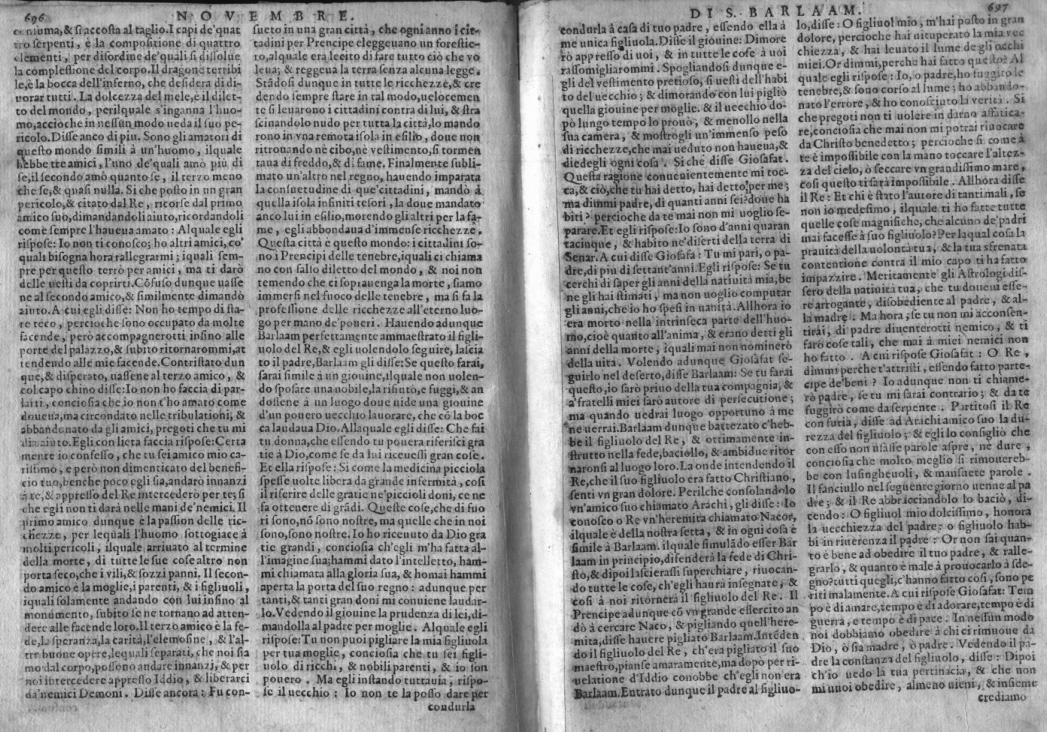 696 NOVEMBRE.
consuma, & si accosta al taglio. I capi de'quat
tro serpenti, è la compositione di quattro
elementi, per disordine de'quali si dissolue
la complessione del corpo. Il dragone terribi
le, è la bocca dell'inferno, che desidera di di-
uorar tutti. La dolcezza del mele, è il dilet-
to del mondo, perilquale s'inganna l'huo-
mo, accioche in nessun modo ueda il suo pe-
ricolo. Disse anco di piu. Sono gli amatori di
questo mondo simili à un'huomo, ilquale
hebbe tre amici, l'uno de'quali amò più di
se, il secondo amò quanto se, il terzo meno
che se, & quasi nulla. Si che posto in un gran
pericolo, & citato dal Re, ricorse dal primo
amico suo, dimandandoli aiuto, ricordandoli
come sempre l'haueua amato: Alquale egli
rispose: Io non ti conosco; ho altri amici, co'
quali bisogna hora rallegrarmi; iquali sem-
pre per questo terrò per amici, ma ti darò
delle uesti da coprirti. Cōfuso dunque uasse
ne al secondo amico, & similmente dimandò
aiuto. A cui egli disse: Non ho tempo di sta-
re teco, percioche sono occupato da molte
facende, però accompagnerotti insino alle
porte del palazzo, & subito ritornaronmi, at
tendendo alle mie facende. Contristato dun
que, & disperato, uassene al terzo amico, &
col capo chino disse: Io non ho faccia di par-
larti, conciosia che io non t'ho amato come
doueua, ma circondato nelle tribulationi, &
abbandonato da gli amici, pregoti che tu mi
dia aiuto. Egli con lieta faccia rispose: Certa
mente io confesso, che tu sei amico mio ca-
rissimo, e però non dimenticato del benefi-
cio tuo, benche poco egli sia, andarò innanzi
à te, & appresso del Re intercederò per te, si
che egli non ti darà nelle mani de'nemici. Il
primo amico dunque è la passion delle ric-
chezze, per lequali l'huomo sottogiace à
molti pericoli, ilquale arriuato al termine
della morte, di tutte le sue cose altro non
porta seco, che i vili, & sozzi panni. Il secon-
do amico è la moglie, i parenti, & i figliuoli,
iquali solamente andando con lui insino al
monumento, subito se ne tornano ad atten-
dere alle facende loro. Il terzo amico è la fe-
de, la speranza, la carità, l'elemosine, & l'al-
tre buone opere, lequali separati, che noi sia
mo dal corpo, possono andare innanzi, & per
noi intercedere appresso Iddio, & liberarci
da'nemici Demoni. Disse ancora: Fu con-
sueto in una gran città, che ogni anno i cit-
tadini per Prencipe eleggeuano un forestie-
ro, alquale era lecito di fare tutto ciò che vo
leua; & reggeua la terra senza alcuna legge.
Stādosi dunque in tutte le ricchezze, & cre
dendo sempre stare in tal modo, uelocemen
te si leuarono i cittadini contra di lui, & stra
scinandolo nudo per tutta la città, lo manda
rono in vna remota isola in esilio, doue non
ritrouando nè cibo, ne vestimento, si tormen
taua di freddo, & di fame. Finalmente subli-
mato un'altro nel regno, hauendo imparata
la consuetudine di que'cittadini, mandò à
quella isola infiniti tesori, la doue mandato
anco lui in esilio, morendo gli altri per la fa-
me, egli abbondaua d'immense ricchezze.
Questa città è questo mondo: i cittadini so-
no i Prencipi delle tenebre, iquali ci chiama
no con falso diletto del mondo, & noi non
temendo che ci soprauenga la morte, siamo
immersi nel fuoco delle tenebre, ma si fa la
professione delle ricchezze all'eterno luo-
go per mano de'poueri. Hauendo adunque
Barlaam perfettamente ammaestrato il figli-
uolo del Re, & egli uolendolo seguire, lascia
to il padre, Barlaam gli disse: Se questo farai,
sarai simile à un giouine, ilqual non uolen-
do sposare una nobile, la rifiutò, e fuggì, & an
dossene à un luogo doue uide una giouine
d'un pouero uecchio lauorare, che cō la boc
ca laudaua Dio. Allaquale egli disse: Che fai
tu donna, che essendo tu pouera riferisci gra
tie à Dio, come se da lui riceuessi gran cose.
Et ella rispose: Si come la medicina picciola
spesse uolte libera da grande infermità, così
il riferire delle gratie ne'piccioli doni, ce ne
fa ottenere di grādi. Queste cose, che di fuo
ri sono, nō sono nostre, ma quelle che in noi
sono, sono nostre. Io ho riceuuto da Dio gra
tie grandi, conciosia ch'egli m'ha fatta al-
l'imagine sua; hammi dato l'intelletto, ham-
mi chiamata alla gloria sua, & homai hammi
aperta la porta del suo regno: adunque per
tanti, & tanti gran doni mi conuiene laudar-
lo. Vedendo il giouine la prudenza di lei, di-
mandolla al padre per moglie. Alquale egli
rispose: Tu non puoi pigliare la mia figliuola
per tua moglie, conciosia che tu sei figli-
uolo di ricchi, & nobili parenti, & io son
pouero. Ma egli instando tuttauia, rispo-
se il uecchio: Io non te la posso dare per
condurla
DI S. BARLAAM. 697
condurla à casa di tuo padre, essendo ella à
me unica figliuola. Disse il giouine: Dimore
rò appresso di uoi, & in tutte le cose à uoi
rassomigliarommi. Spogliandosi dunque e-
gli del vestimento pretioso, si uesti dell'habi
to del uecchio; & dimorando con lui pigliò
quella giouine per moglie. & il uecchio do-
pò lungo tempo lo prouò, & menollo nella
sua camera, & mostrogli un'immenso peso
di ricchezze, che mai ueduto non haueua, &
diedegli ogni cosa. Si che disse Giosafat.
Questa ragione conuenientemente mi toc-
ca, & ciò, che tu hai detto, hai detto per me;
ma dimmi padre, di quanti anni sei? doue ha
biti? percioche da te mai non mi uoglio se-
parare. Et egli rispose: Io sono d'anni quaran
tacinque, & habito ne'diserti della terra di
Senar. A cui disse Giosafa: Tu mi pari, o pa-
dre, di piu di settant'anni. Egli rispose: Se tu
cerchi di saper gli anni della natiuità mia, be
ne gli hai stimati, ma non uoglio computar
gli anni, che io ho spesi in uanità. Allhora io
era morto nella intrinseca parte dell'huo-
mo, cioè quanto all'anima, & erano detti gli
anni della morte; iquali mai non nominerò
della uita. Volendo adunque Giosafat se-
guirlo nel deserto, disse Barlaam: Se tu farai
questo, io sarò priuo della tua compagnia, &
a'fratelli miei sarò autore di persecutione;
ma quando uedrai luogo opportuno à me
ne uerrai. Barlaam dunque battezato c'heb-
be il figliuolo del Re, & ottimamente in-
strutto nella fede, baciollo, & ambidue ritor
naronsi al luogo loro. La onde intendendo il
Re, che il suo figliuolo era fatto Christiano,
sentì vn gran dolore. Perilche consolandolo
vn'amico suo chiamato Arachi, gli disse: Io
conosco o Re vn'heremita chiamato Nacor,
ilquale è della nostra setta, & in ogni cosa è
simile à Barlaam. ilquale simulādo esser Bar
laam in principio, difenderà la fede di Chri-
sto, & dipoi lascierassi superchiare, riuocan-
do tutte le cose, ch'egli haurà insegnate, &
così à noi ritornerà il figliuolo del Re. Il
Prencipe adunque cō vn grande essercito an
dò à cercare Naco, & pigliando quell'here-
mita, disse hauere pigliato Barlaam. Intēden
do il figliuolo del Re, ch'era pigliato il suo
maestro, pianse amaramente, ma dopò per ri-
uelatione d'Iddio conobbe ch'egli non'era
Barlaam. Entrato dunque il padre al figliuo-
lo, disse: O figliuol mio, m'hai posto in gran
dolore, percioche hai uituperato la mia vec
chiezza, & hai leuato il lume de gli occhi
miei. Or dimmi, perche hai fatto questo? Al
quale egli rispose: Io, o padre, ho fuggito le
tenebre, & sono corso al lume; ho abbando-
nato l'errore, & ho conosciuto la verità. Si
che pregoti non ti uolere in darno affatica-
re, conciosia che mai non mi potrai riuocare
da Christo benedetto; percioche si come à
te è impossibile con la mano toccare l'altez-
za del cielo, ò seccare vn grandissimo mare,
così questo ti sarà impossibile. Allhora disse
il Re: Et chi è stato l'autore di tanti mali, se
non io medesimo, ilquale ti ho fatte tutte
quelle cose magnifiche, che alcuno de'padri
mai facesse à suo figliuolo? Per laqual cosa la
prauità della uolontà tua, & la tua sfrenata
contentione contra il mio capo ti ha fatto
impazzire. Meritamente gli Astrologi dis-
sero della natiuità tua, che tu doueui esse-
re arrogante, disobediente al padre, & al-
la madre: Ma hora, se tu non mi acconsen-
tirai, di padre diuenterotti nemico, & ti
farò cose tali, che mai à miei nemici non
ho fatto. A cui rispose Giosafat: O Re,
dimmi perche t'attristi, essendo fatto parte-
cipe de'beni? Io adunque non ti chiame-
rò padre, se tu mi sarai contrario; & da te
fuggirò come da serpente. Partitosi il Re
con furia, disse ad Arachi amico suo la du-
rezza del figliuolo; & egli lo consigliò che
con esso non usasse parole aspre, ne dure,
conciosia che molto meglio si rimouereb-
be con lusingheuoli, & mansuete parole.
Il fanciullo nel seguente giorno uenne al pa
dre; & il Re abbracciandolo lo baciò, di-
cendo: O figliuol mio dolcissimo, honora
la uecchiezza del padre; o figliuolo hab-
bi in riuerenza il padre: Or non sai quan-
to è bene ad obedire il tuo padre, & ralle-
grarlo, & quanto è male à prouocarlo à sde-
gno? tutti quegli, c'hanno fatto così, sono pe
riti malamente. A cui rispose Giosafat: Tem
po è di amare, tempo è di adorare, tempo è di
guerra, e tempo è di pace. In nessun modo
noi dobbiamo obedire à chi ci rimuoue da
Dio, ò sia madre, ò padre. Vedendo il pa-
dre la constanza del figliuolo, disse: Dapoi
ch'io uedo la tua pertinacia, & che non
mi uuoi obedire, almeno uieni, & insieme
crediamo